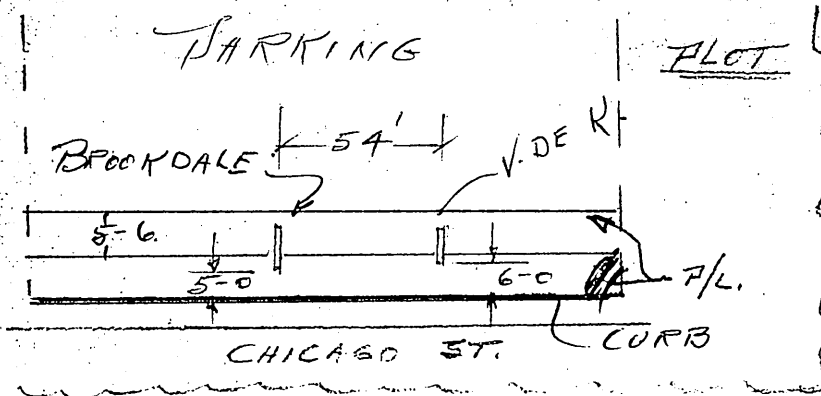 PARKING
PLOT
54'
BROOKDALE
V. DE K
5-6.
5-0
6-0
P/L.
CURB
CHICAGO ST.